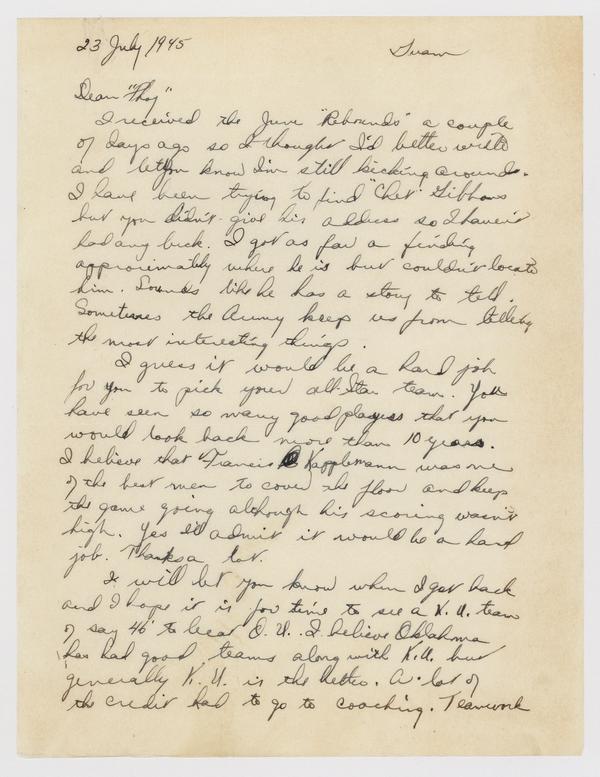 23 July 1945 Guam
Dear "Phog"
I received the June "Rebounds" a couple
of days ago so I thought I'd better write
and let you know I'm still kicking around.
I have been trying to find "Chet" Gibbons
but you didn't give his address so I haven't
had any luck. I got as far a finding
approximately where he is but couldn't locate
him. Sounds like he has a story to tell.
Sometimes the Army keep us from telling
the most interesting things.
I guess it would be a hard job
for you to pick your all-Star team. You
have seen so many good players that you
would look back more than 10 years.
I believe that "Francis Kapplemann was one
of the best men to cover the floor and keep
the game going although his scoring wasn't
high. Yes I'll admit it would be a hard
job. Thanks a lot.
I will let you know when I get back
and I hope it is for time to see a K.U. team
of say 46' to beat O.U. I believe Oklahoma
has had good teams along with K.U. but
generally K.U. is the better. A lot of
the credit had to go to coaching. Teamwork